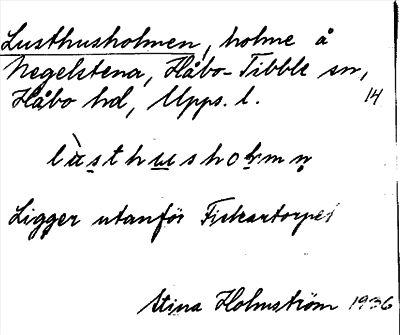 Lusthusholmen, holme å
Negelstena, Håbo-Tibble sn,
Håbo hd, Upps. l. 14
lùsthusholmn
Ligger utanför Fiskartorpet
Stina Holmström 1936